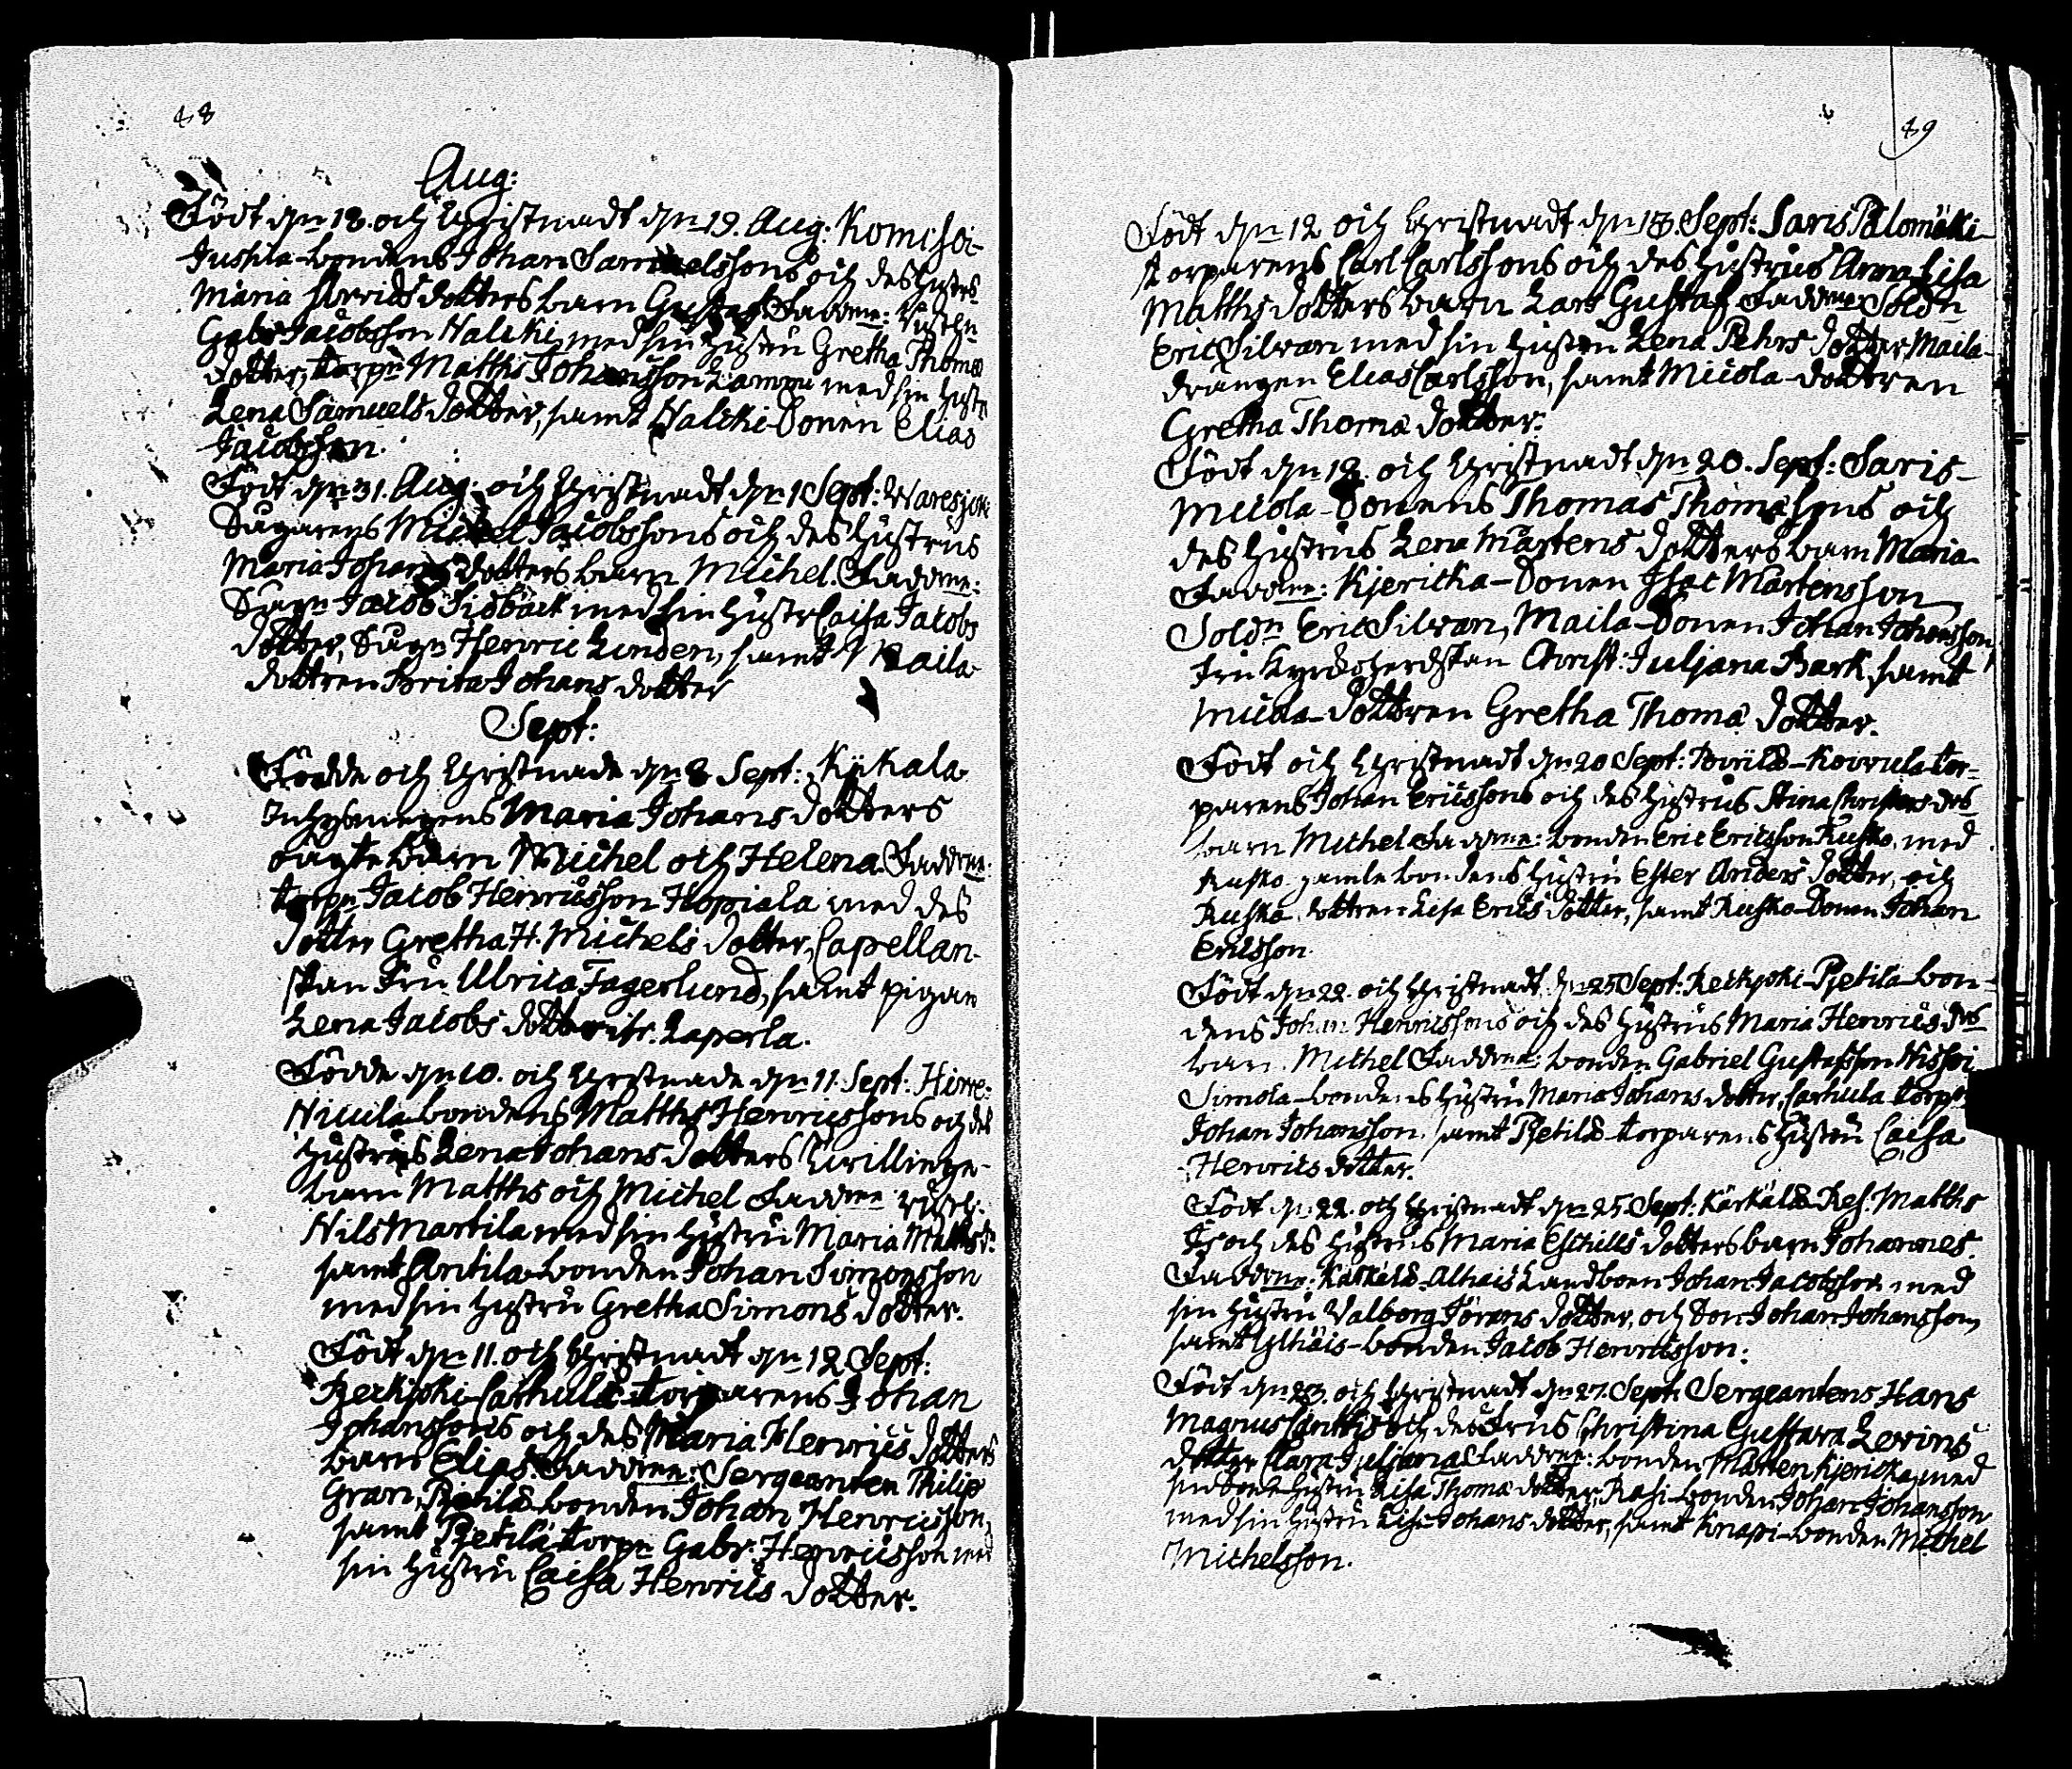 48
Aug:
Födt den 18. och Christnadt den 19. Aug: Komisoi-
Juskila-bondens Johan Samuelssons och des hustrus
Maria Arvids dotters barn Gustaf. Faddrne:
Gabr: Jacobsson Halcki med sin hustru Gretha Thomæ
dotter, torpn Matths Johansson Lamppu med sin hustr
Lena Samuels dotter, samt Halcki-Sonen Elias
Jacobsson.
Födt den 31. Aug: och Christnadt den 1 Sept: Waresjoki
Sugarens Michel Jacobssons och des hustrus
Maria Johans dotters barn Michel. Faddrne:
Jacob Sidbäck med sin hustr Caisa Jacobs
dotter, Henric Linden, samt Maila
dottren Brita Johans dotter
Sept:
Födde och Christnade den 8 Sept: Kykala
Inhysmegens Maria Johans dotters
oägte barn Michel och Helena. Faddrne:
torpn Jacob Henricsson Hopiala med des
dotter Gretha H. Michels dotter, Capellan-
skan Fru Ulrica Fagerlund, samt pigan
Lena Jacobs dotter ifr. Laperla.
Födde den 10. och Christnade den 11. Sept: Hirve:
Nicula-bondens Matths Henricssons och des
hustrus Lena Johans dotters Twillinge-
barn Matths och Michel Faddrne:
Nils Martila med sin hustru Maria Matths dr
samt Antila-bonden Johan Simonsson
med sin hustru Gretha Simons dotter.
Födt den 11. och Christnadt den 12 Sept:
Reckijoki-Carhula-torparens Johan
Johanssons och des Maria Henrics dotters
barn Elias. Faddrne: Sergeanten Philip
Gran, Pjetilä-bonden Johan Henricsson,
samt Pjetilä-torpn Gabr: Henricsson med
sin hustru Caisa Henrics dotter.
49
Födt den 12 och Christnadt den 18. Sept: Saris Palomäki
torparens Carl Carlssons och des hustrus Anna Lisa
Matths dotters barn Lars Gustaf Faddrne: Soldn
Eric Silvan med sin hustru Lena Pehrs dotter Maila-
drängen Elias Carlsson, samt Micola-dottren
Gretha Thomæ dotter.
Födt den 18. och Christnadt den 20. Sept: Saris-
Micola-Sonens Thomas Thomæsons och
des hustrus Lena Mårtens dotters barn Maria
Faddrne: Kjericka-Sonen Isac Mårtensson
Soldn Eric Silvan, Maila-Sonen Johan Johansson,
Fru Kyrckoherdskan Christ: Juljana Bark, samt
Micola-dottren Gretha Thomæ dotter.
Födt och Christnadt den 20 Sept: Koivula tor-
parens Johan Ericssons och des hustrus Stina Christers dot
barn Michel Faddrne: bonden Eric Ericsson Rusko, med
Rusko gamle bondens hustru Ester Anders dotter, och
Rusko dottren Lisa Erics dotter, samt Rusko-Sonen Johan
Ericsson.
Födt den 22. och Christnadt den 25 Sept: Reckijoki-Pjetila-bon-
dens Johan Henricssons och des hustrus Maria Henrics dot
barn Michel Faddrne: bonden Gabriel Gustafsson Missoi
Simola-bondens hustru Maria Johans dotter, Carhula torpn
Johan Johansson, samt Pjetilä-torparens hustru Caisa
Henrics dotter.
Födt den 22. och Christnadt den 25. Sept: Kärkälä Res. Matths
Is och des hustrus Maria Eschills dotters barn Johannes.
Faddrne: Kärkälä-Alhais Landboen Johan Jacobsson med
sin hustru Valborg Jörans dotter, och Son Johan Johansson,
samt Ylhäis-bonden Jacob Henricsson.
Födt den 23. och Christnadt den 27. Sept: Sergeantens Hans
Magnus och des Frus Christina Gustava Levins
dotter Clara Juljana Faddrne: bonden Mårten Kjericka, med
hustru Lisa Thomæ dotter, Rasi-bonden Johan Johansson
med sin hustru Lisa Johans dotter, samt Knapi-bonden Michel
Michelsson.